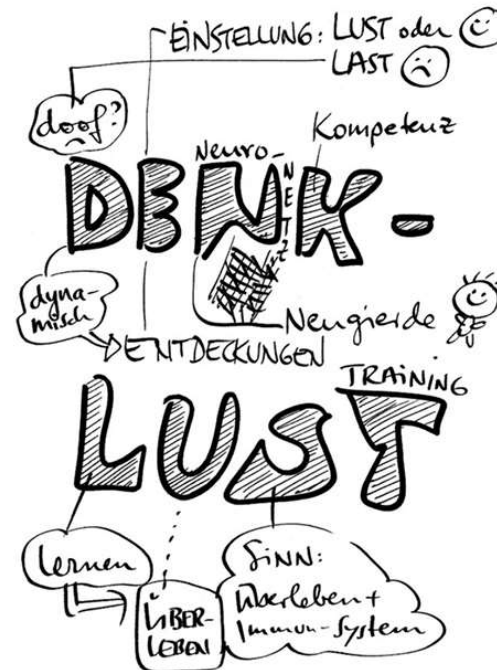 EINSTELLUNG: LUST oder
LAST
doof?
Kompetenz
Neuro-
NETZ
DENK-
dyna-
misch
Neugierde
ENTDECKUNGEN
TRAINING
LUST
lernen
ÜBER-
LEBEN
SINN:
Überleben +
Immun-System